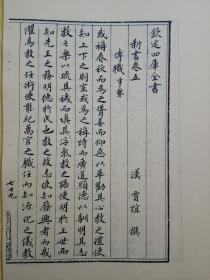 欽定四庫全書
新書卷五
漢 賈誼 撰
傅職 事勢
或稱春秋而為之聳善而抑惡以革勸其心教之禮使
知上下之則宣或為之稱詩而廣道顯德以馴明其志
教之樂以疏其穢而填其浮氣教之語使明於上世而
知先王之務明德於民也教之故志使知廢興者而戒
懼焉教之任術使能紀萬官之職任而知治化之儀教